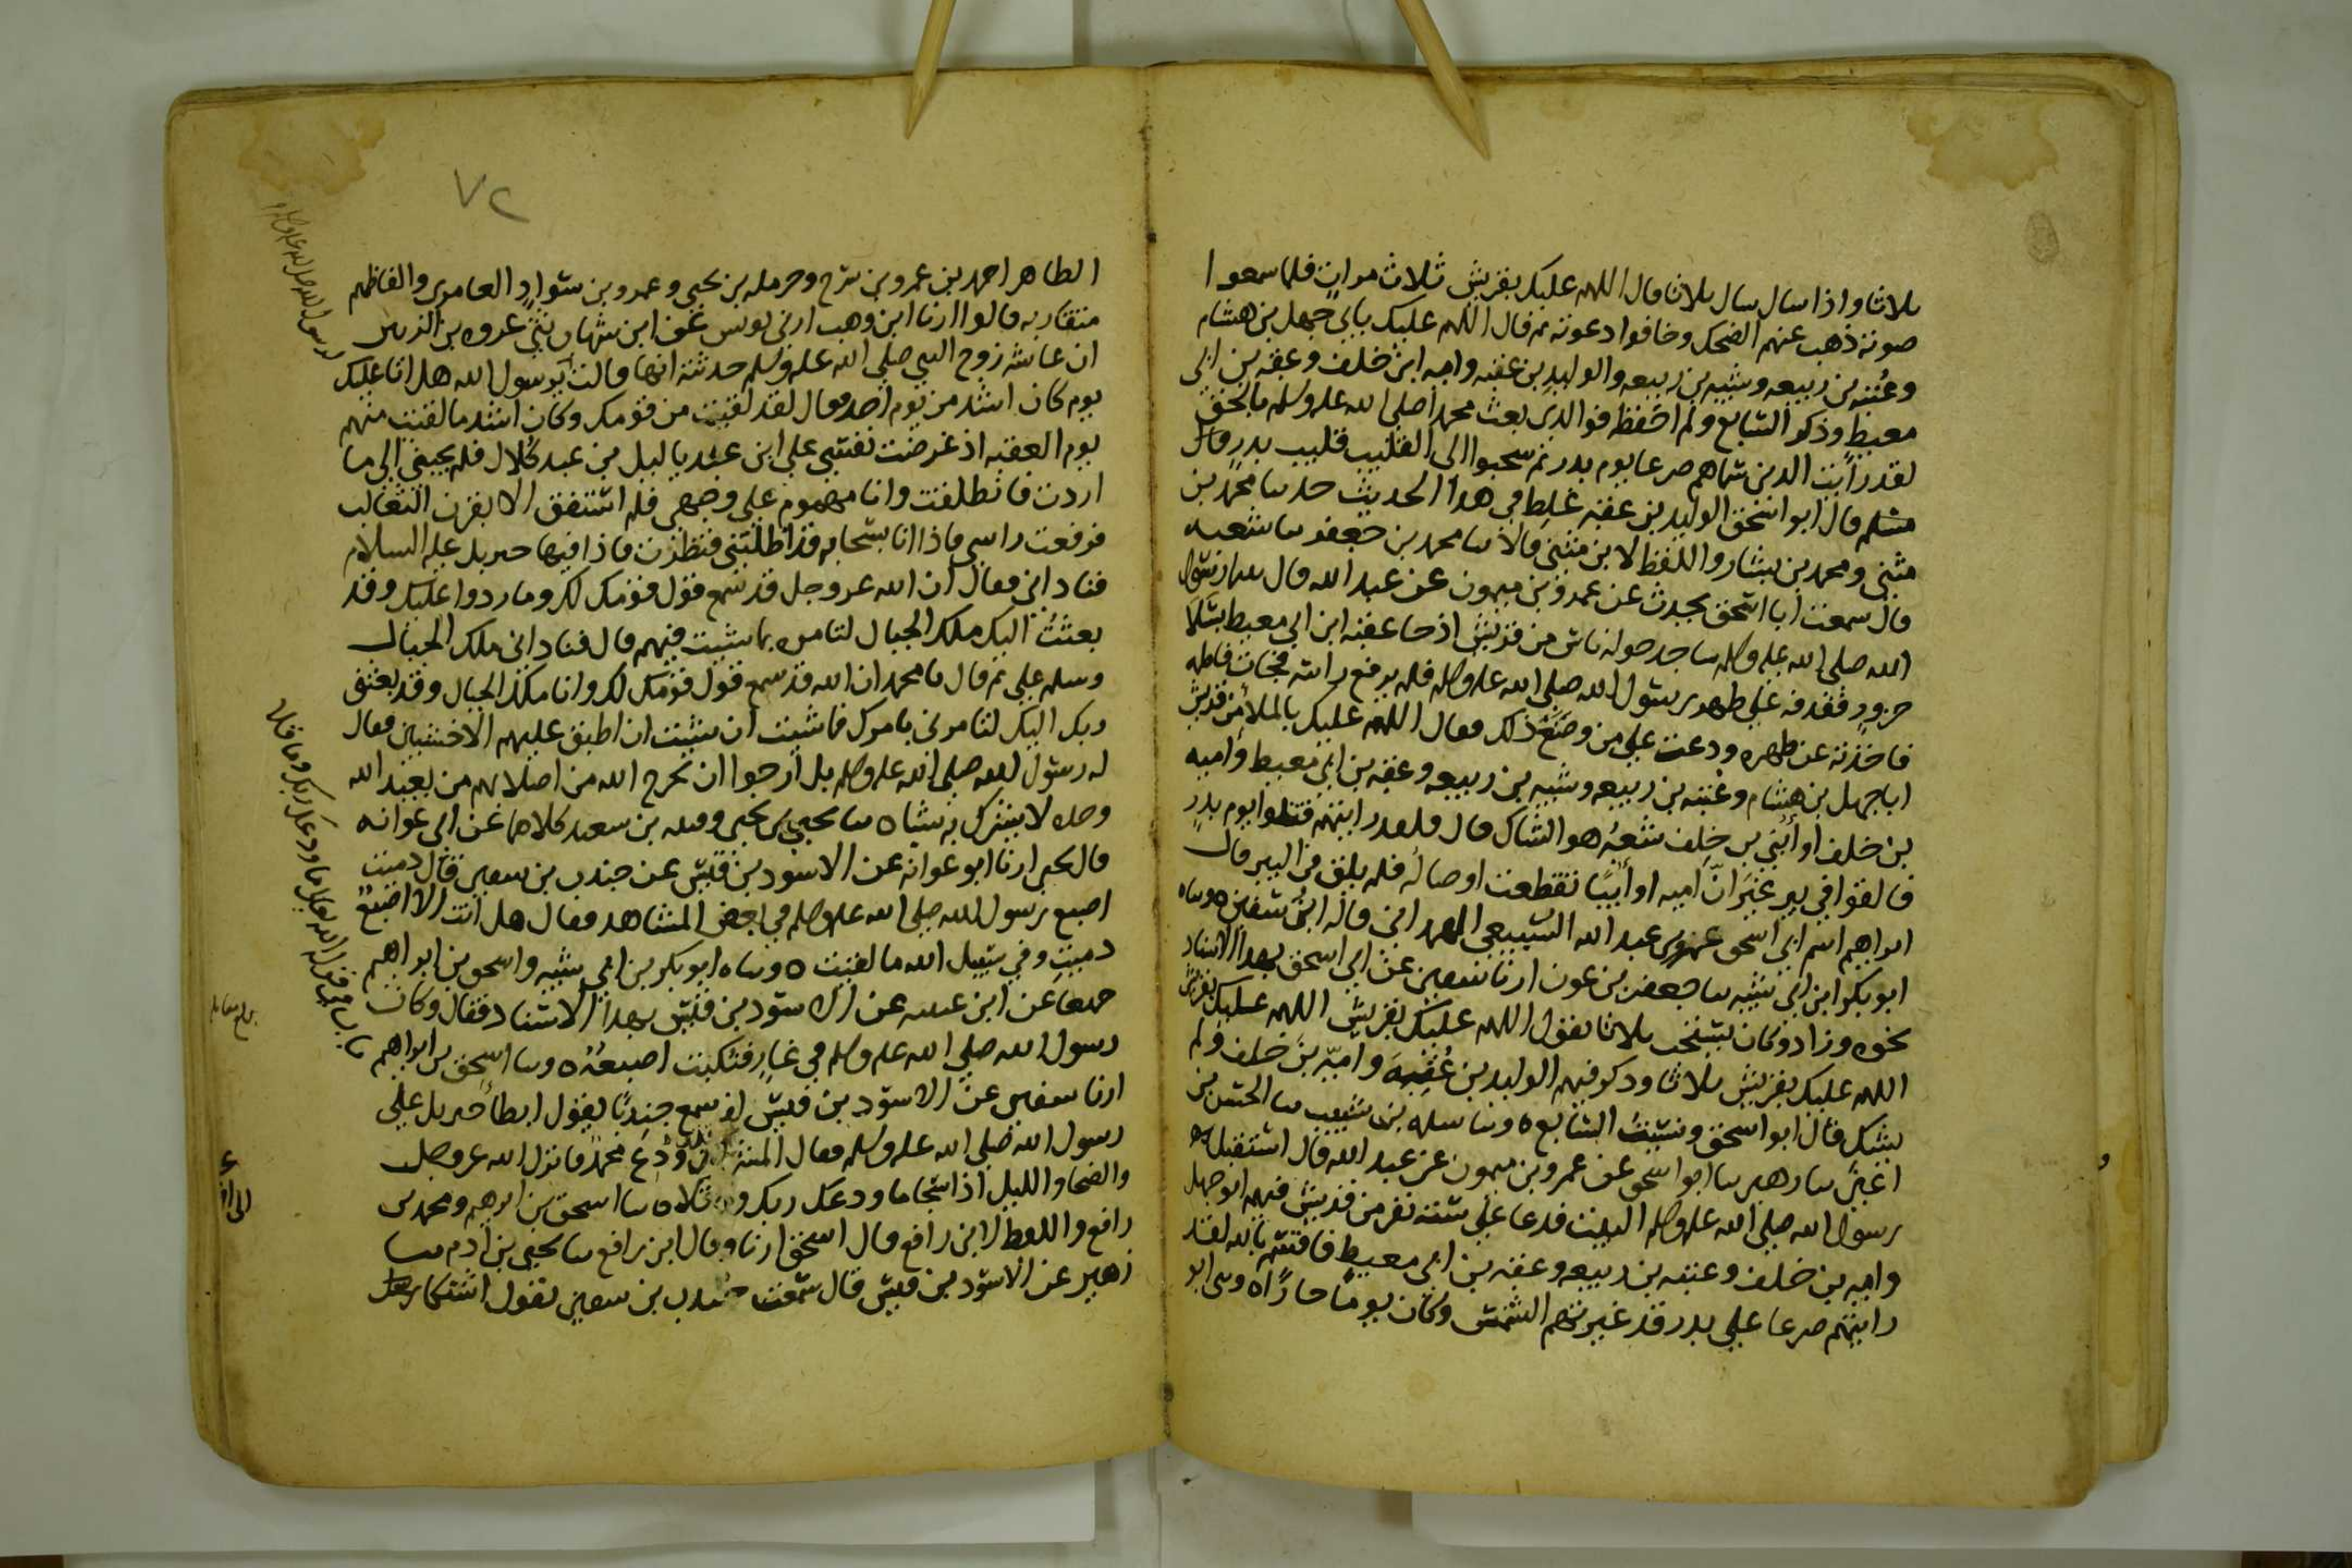 ثلاثا واذا سال سال ثلاثا قال اللهم عليك بقريش ثلاث مرات فلما سمعوا
صوته ذهب عنهم الضحك وخافوا دعوته ثم قال اللهم عليك بابي جهل بن هشام
وعتبه بن ربيعه وشيبه بن ربيعه والوليد بن عقبه واميه ابن خلف وعقبه بن ابي
معيط وذكر السابع ولم احفظه فوالذي بعث محمدا صلى الله عليه وسلم بالحق
لقد رايت الذين سماهم صرعا يوم بدر ثم سحبوا الى القليب قليب بدر قال
مسلم قال ابو اسحق الوليد بن عقبه غلط في هذا الحديث حدثنا محمد بن
مثنى ومحمد بن بشار واللفظ لابن مثنى قالا ثنا محمد بن جعفر ثنا شعبه
قال سمعت ابا اسحق يحدث عن عمرو بن ميمون عن عبد الله قال بينما رسول
الله صلى الله عليه وسلم ساجد حوله ناس من قريش اذ جا عقبه ابن ابي معيط بسلا
جزور فقذفه على ظهر رسول الله صلى الله عليه وسلم فلم يرفع راسه فجات فاطمه
فاخذته عن ظهره ودعت على من وضع ذلك فقال اللهم عليك بالملأ من قريش
ابا جهل بن هشام وعتبه بن ربيعه وشيبه بن ربيعه وعقبه بن ابي معيط واميه
بن خلف او أبي بن خلف شعبه هو الشاك قال فلقد رايتهم قتلوا يوم بدر
فالقوا في بير غير ان اميه او أبيا تقطعت اوصاله فلم يلق في البير قال
ابراهيم اسم ابي اسحق عمرو بن عبد الله السبيعي الهمداني قاله ابن سفين ه وثناه
ابو بكر ابن ابي شيبه ثنا جعفر بن عون ارنا سفين عن ابي اسحق بهذا الاسناد
نحوه وزاد وكان يستحب ثلاثا يقول اللهم عليك بقريش اللهم عليك بقريش
اللهم عليك بقريش ثلاثا وذكر فيهم الوليد بن عقبه واميه بن خلف ولم
يشك قال ابو اسحق ونسيت السابع ه وثنا سلمه بن شبيب ثنا الحسن بن
اعين ثنا زهير ثنا ابو اسحق عن عمرو بن ميمون عن عبد الله قال استقبل
رسول الله صلى الله عليه وسلم البيت فدعا على سته نفر من قريش فيهم ابو جهل
واميه بن خلف وعتبه بن ربيعه وعقبه بن ابي معيط فاقسم بالله لقد
رايتهم صرعا على بدر قد غيرتهم الشمس وكان يوما حارا ه وثنى ابو
٧٢
الطاهر احمد بن عمرو بن سرح وحرمله بن يحيى وعمرو بن سواد العامري والفاظهم
متقاربه قالوا ارنا ابن وهب ارنى يونس عن ابن شهاب ثنى عروه بن الزبير
ان عائشه زوج النبي صلى الله عليه وسلم حدثته انها قالت يرسول الله هل اتا عليك
يوم كان اشد من يوم احد فقال لقد لقيت من قومك وكان اشد ما لقيت منهم
يوم العقبه اذ عرضت نفسي على ابن عبد ياليل بن عبد كلال فلم يجبني الى ما
اردت فانطلقت وانا مهموم على وجهي فلم استفق الا بقرن الثعالب
فرفعت راسي فاذا انا بسحابه قد اظلتني فنظرت فاذا فيها جبريل عليه السلام
فناداني فقال ان الله عز وجل قد سمع قول قومك لك وما ردوا عليك وقد
بعثت اليك ملك الجبال لتامره بما شيت فيهم قال فناداني ملك الجبال
وسلم علي ثم قال يا محمد ان الله قد سمع قول قومك لك وانا ملك الجبال وقد بعثني
ربك اليك لتامرني بامرك فما شيت ان شيت ان اطبق عليهم الاخشبين فقال
له رسول الله صلى الله عليه وسلم بل ارجوا ان يخرج الله من اصلابهم من يعبد الله
وحده لا يشرك به شيا ه ثنا يحيى بن يحيى وقتيبه بن سعيد كلاهما عن ابي عوانه
قال يحيى ارنا ابو عوانه عن الاسود بن قيس عن جندب بن سفين قال دميت
اصبع رسول الله صلى الله عليه وسلم في بعض المشاهد فقال هل انت الا اصبع
دميت وفي سبيل الله ما لقيت ه وثناه ابو بكر بن ابي شيبه واسحق بن ابراهيم
جميعا عن ابن عيينه عن الاسود بن قيس بهذا الاسناد فقال وكان
رسول الله صلى الله عليه وسلم في غار فنكبت اصبعه ه وثنا اسحق بن ابراهيم
ارنا سفين عن الاسود بن قيس انه سمع جندبا يقول ابطأ جبريل على
رسول الله صلى الله عليه وسلم فقال المشركون قد ودع محمد فانزل الله عز وجل
والضحا والليل اذا سجا ما ودعك ربك وما قلا ه ثنا اسحق بن ابرهيم ومحمد بن
رافع واللفظ لابن رافع قال اسحق ارنا وقال ابن رافع ثنا يحيى بن ادم ثنا
زهير عن الاسود بن قيس قال سمعت جندب بن سفين يقول اشتكا رسول
رسول الله صلى الله عليه وسلم
باب في قوله الله تعالى ما ودعك ربك وما قلا